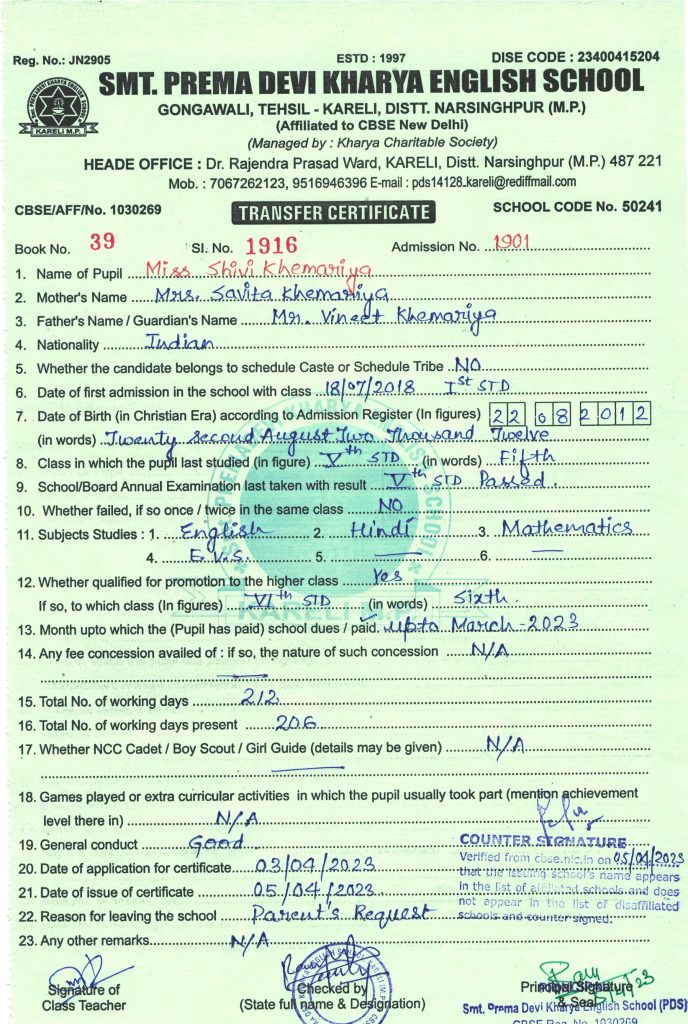 Reg. No.: JN2905 ESTD : 1997 DISE CODE : 23400415204
SMT. PREMA DEVI KHARYA ENGLISH SCHOOL
GONGAWALI, TEHSIL - KARELI, DISTT. NARSINGHPUR (M.P.)
(Affiliated to CBSE New Delhi)
(Managed by : Kharya Charitable Society)
KARELI M.P.
HEADE OFFICE : Dr. Rajendra Prasad Ward, KARELI, Distt. Narsinghpur (M.P.) 487 221
Mob. : 7067262123, 9516946396 E-mail : pds14128.kareli@rediffmail.com
CBSE/AFF/No. 1030269 TRANSFER CERTIFICATE SCHOOL CODE No. 50241
Book No. 39 Sl. No. 1916 Admission No. 1901
1. Name of Pupil Miss Shivi Khemariya
2. Mother's Name Mrs. Savita Khemariya
3. Father's Name / Guardian's Name Mr. Vineet Khemariya
4. Nationality Indian
5. Whether the candidate belongs to schedule Caste or Schedule Tribe NO
6. Date of first admission in the school with class 18/07/2018 Ist STD
7. Date of Birth (in Christian Era) according to Admission Register (In figures) 22 08 2012
(in words) Twenty Second August Two Thousand Twelve
8. Class in which the pupil last studied (in figure) Vth STD (in words) Fifth
9. School/Board Annual Examination last taken with result Vth STD Passed.
10. Whether failed, if so once / twice in the same class NO
11. Subjects Studies : 1. English 2. Hindi 3. Mathematics
4. E.V.S. 5. — 6. —
12. Whether qualified for promotion to the higher class Yes
If so, to which class (In figures) VIth STD (in words) Sixth.
13. Month upto which the (Pupil has paid) school dues / paid. upto March-2023
14. Any fee concession availed of : if so, the nature of such concession N/A
15. Total No. of working days 212
16. Total No. of working days present 206
17. Whether NCC Cadet / Boy Scout / Girl Guide (details may be given) N/A
18. Games played or extra curricular activities in which the pupil usually took part (mention achievement
level there in) N/A
19. General conduct Good
COUNTER SIGNATURE
Verified from cbse.nic.in on 05/04/2023
that the issuing school's name appears
in the list of affiliated schools and does
not appear in the list of disaffiliated
schools and counter signed.
20. Date of application for certificate 03/04/2023
21. Date of issue of certificate 05/04/2023
22. Reason for leaving the school Parent's Request
23. Any other remarks N/A
Signature of Class Teacher
Checked by
(State full name & Designation)
Principal Signature
& Seal
Smt. Prema Devi Kharya English School (PDS)
CBSE Reg. No. 1030269